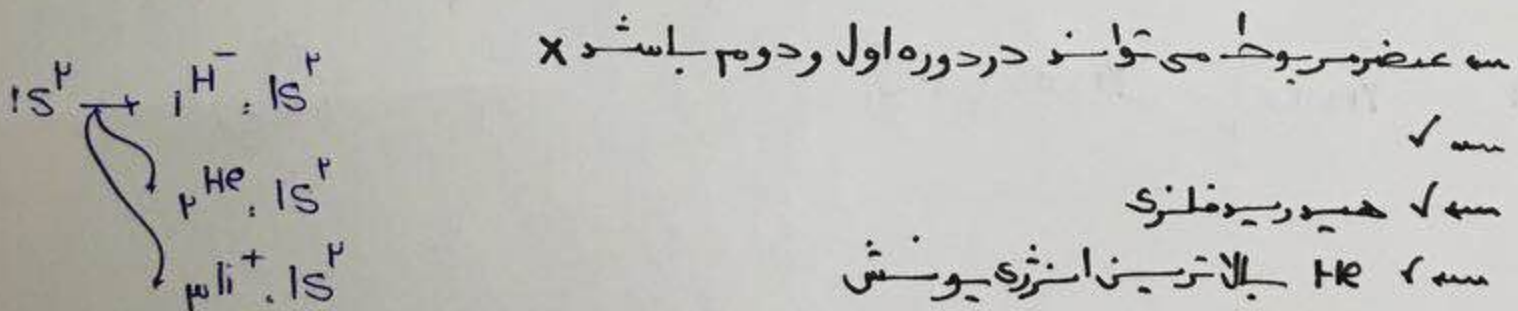 عنصر مربوط می تواند در دوره اول و دوم باشد ×
✓
✓ هیدرید فلزی
✓ He بالاترین انرژی یونش
1S² → ₁H⁻ : 1S²
₂He : 1S²
₃Li⁺ : 1S²